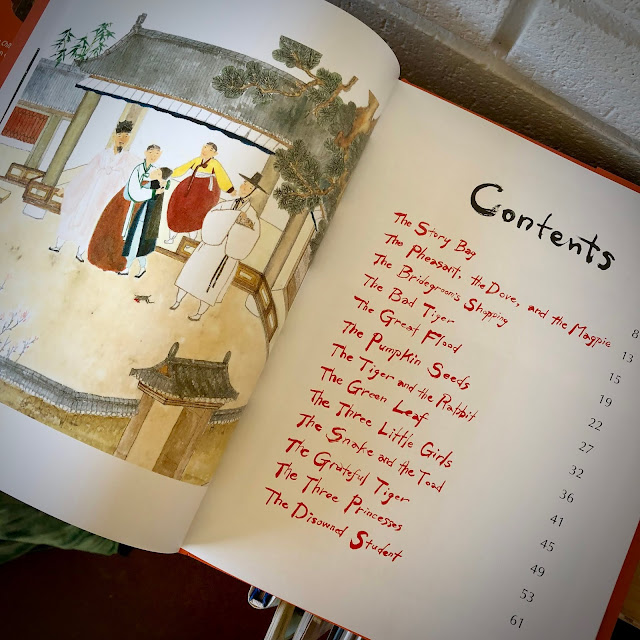 Contents
The Story Bag 8
The Pheasant, the Dove, and the Magpie 13
The Bridegroom's Shopping 15
The Bad Tiger 19
The Great Flood 22
The Pumpkin Seeds 27
The Tiger and the Rabbit 32
The Green Leaf 36
The Three Little Girls 41
The Snake and the Toad 45
The Grateful Tiger 49
The Three Princesses 53
The Disowned Student 61